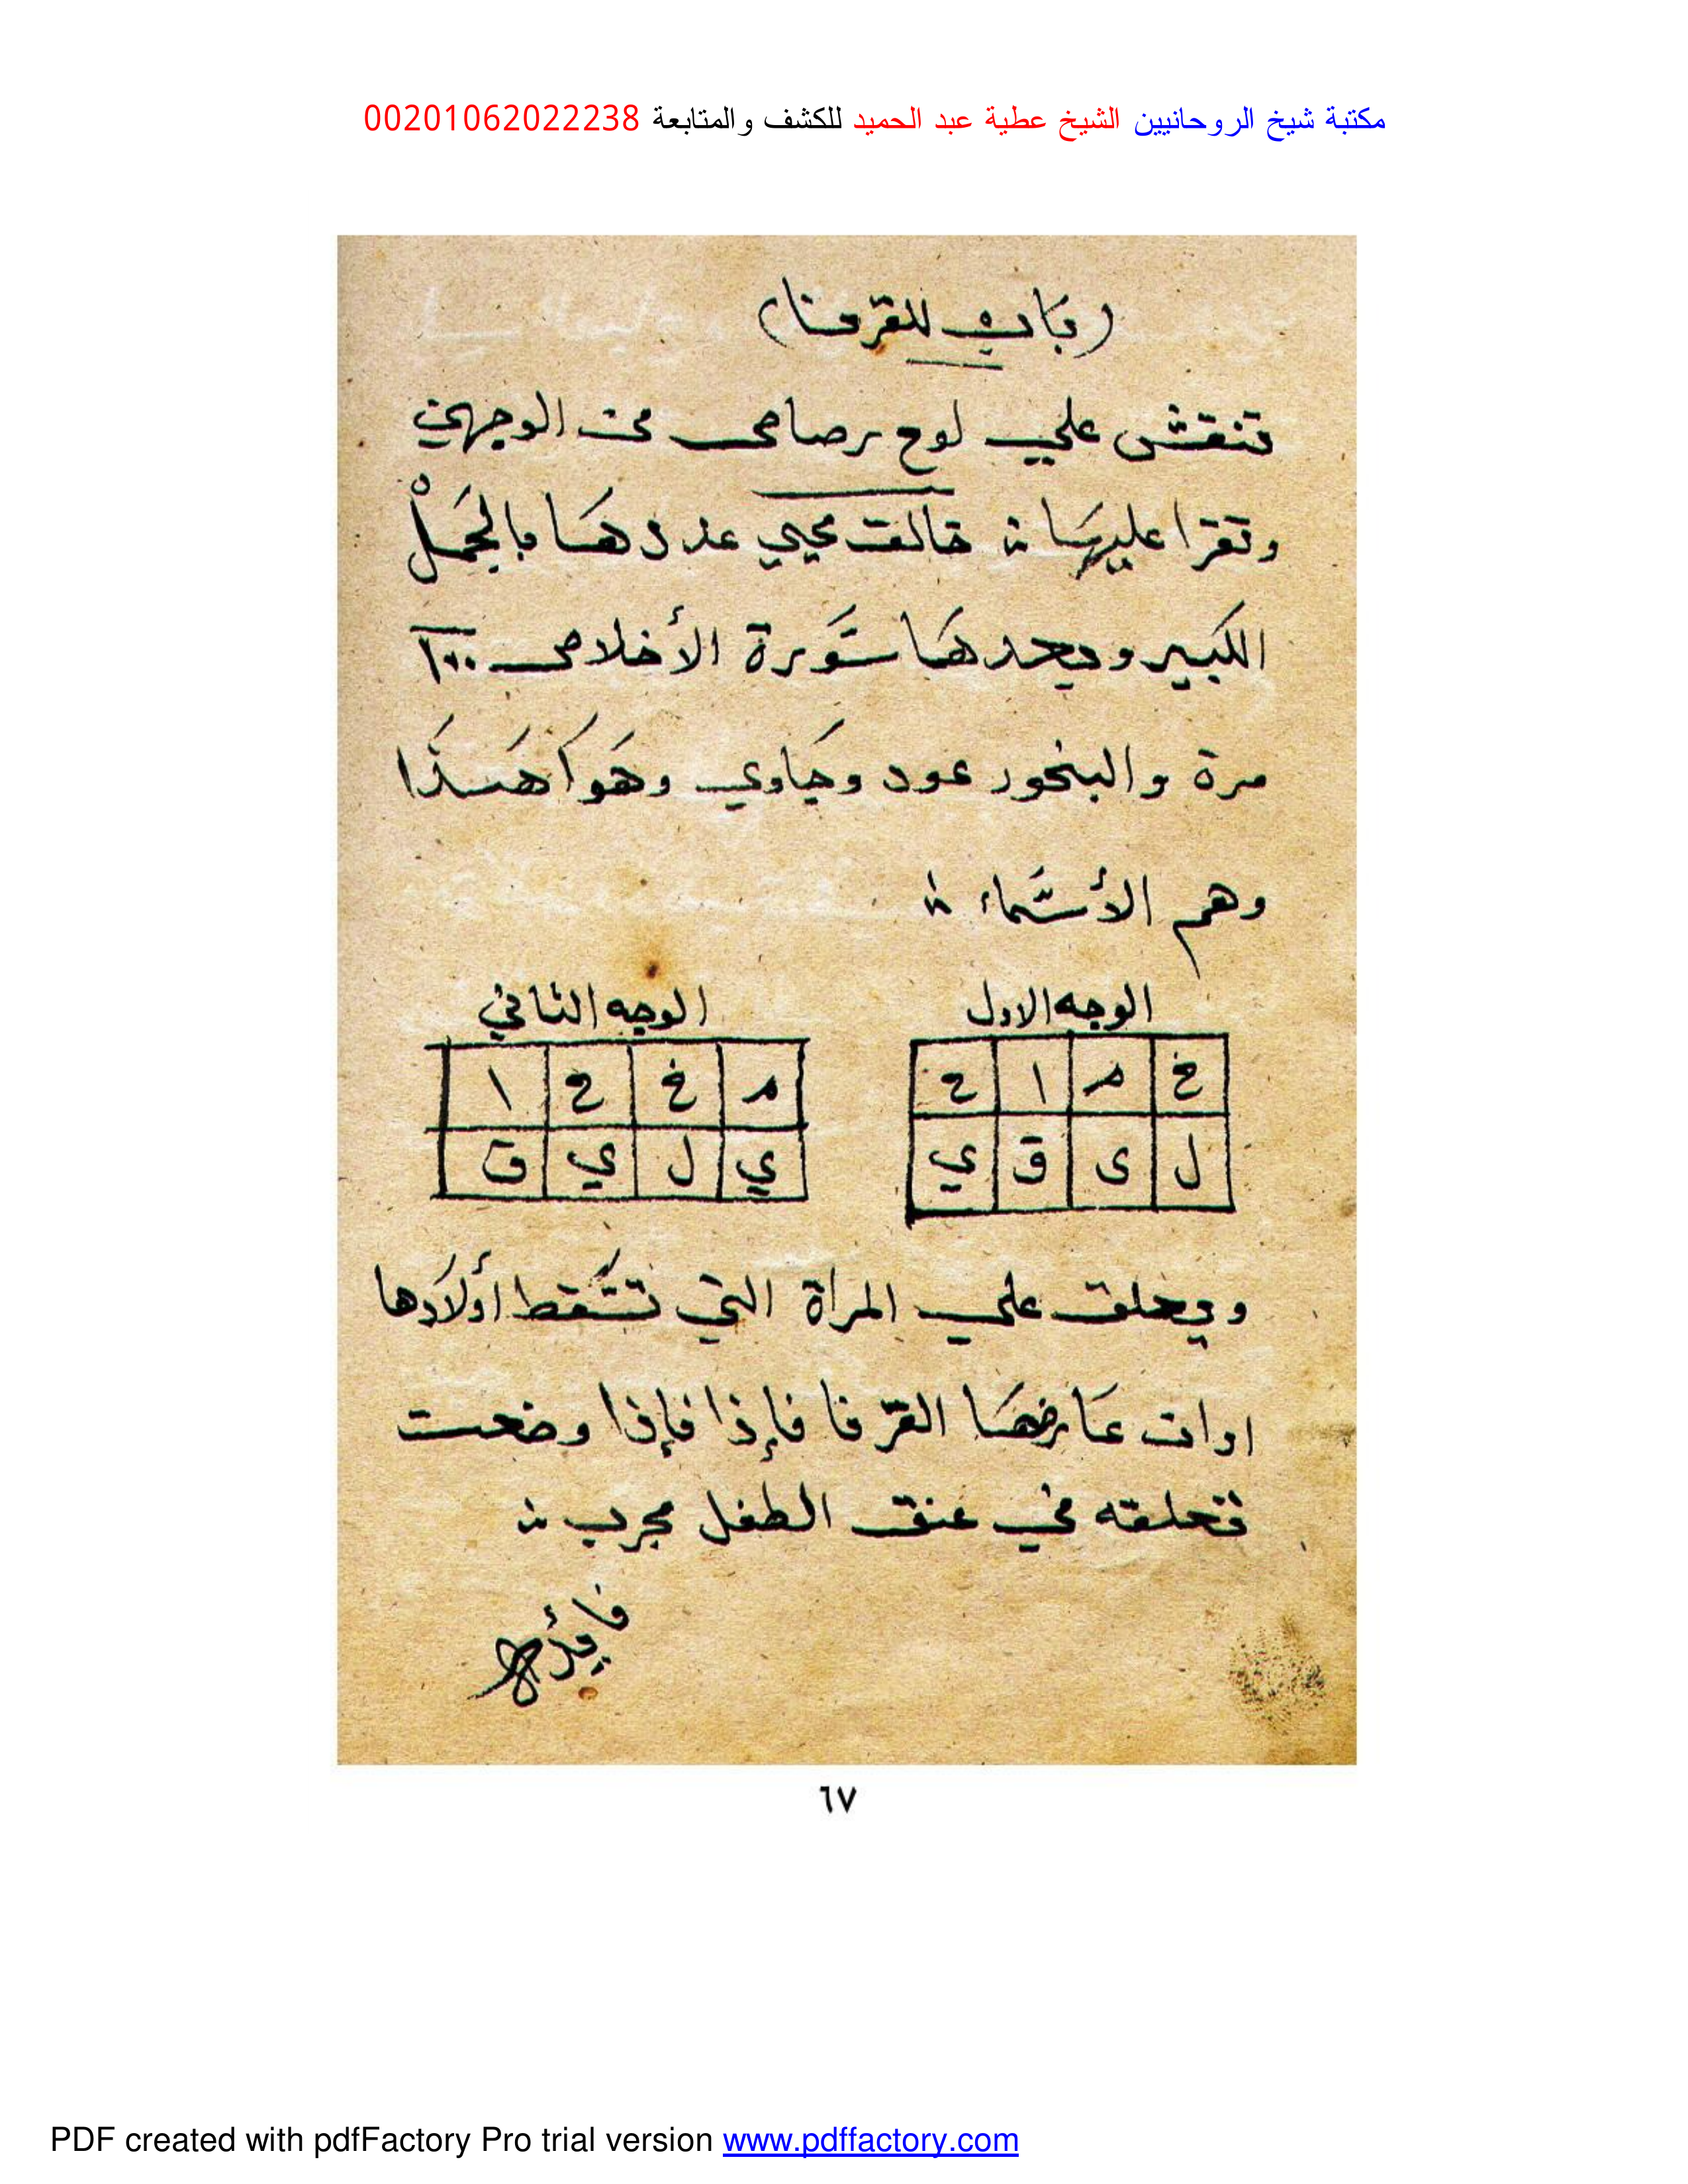 مكتبة شيخ الروحانيين الشيخ عطية عبد الحميد للكشف والمتابعة 00201062022238
(باب للقرينا)
تنقش علي لوح رصاص من الوجهين
وتقرا عليها خالق محيي عددها بالجملْ
الكبير وبعدها سورة الأخلاص ١٠٠
مرة والبخور عود وجاوي وهوا هذا
وهم الأسماء
الوجه الاول
خ م ا ح
ل ى ق ي
الوجه الثاني
م خ ح ا
ي ل ي ق
ويعلق علي المرأة التي تسقط أولادها
اوات عارضها القرنا فإذا فإذا وضعت
تعلقه في عنق الطفل مجرب
٦٧
PDF created with pdfFactory Pro trial version www.pdffactory.com